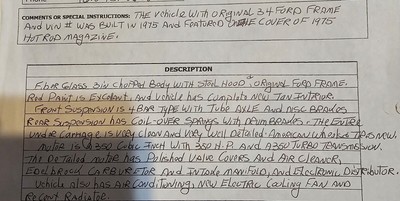 COMMENTS OR SPECIAL INSTRUCTIONS: THE vehicle with original 34 FORD FRAME
And Vin # WAS BUILT IN 1975 And FEATURED ON THE COVER OF 1975
HOT ROD MAGAZINE.
DESCRIPTION
Fiber GlASS 3in Chopped Body with Steel Hood, original FORD FRAME.
Red Paint is Excelant, And vehicle has Complete New Tan Interior.
Front Suspension is 4 BAR TYPE with Tube Axle AND DISC BRAKES
REAR SUSPENSION HAS COIL-OVER SPRINGS with DRUM BRAKES. THE ENTIRE
under CARRAGE is very clean And Very well Detailed. AMERICAN wheels TIRES NEW.
MOTER is A 350 Cubic INCH with 350 H.P. And A 350 TURBO TRANSMISSION.
THE Detailed MOTER has Polished VALVE COVERS And AIR CLEANER,
EdelBROCK CARBURETOR And INTAKE MANIFOLD, And ELECTRONIC DISTRIBUTOR.
Vehicle also has AIR CONDITIONING, NEW ELECTRIC COOLING FAN AND
RECENT Radiator.